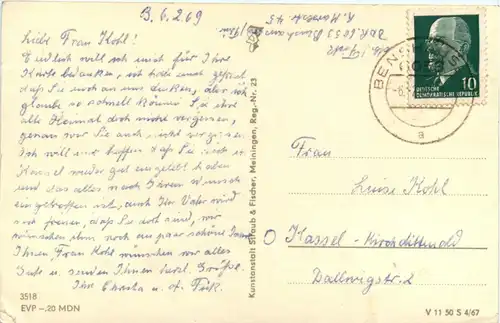 B. 6.2.69
Liebe Frau Kohl!
Endlich will ich mich für Ihre
Karte bedanken, ich habe mich gefreut
daß Sie noch an uns denken, aber ich
glaube so schnell können Sie ihre
alte Heimat doch nicht vergessen,
genau wie Sie auch nicht vergessen.
Ich will nur hoffen daß Sie sich in
Kassel wieder gut eingelebt haben
und das alles nach Ihrem Wunsch
eingetroffen ist, auch Ihr Vater wird
sich freuen, daß Sie dort sind, wir
wünschen ihm noch ein paar schöne Jahre
Ihnen, Frau Kohl wünschen wir alles
Gute u. senden Ihnen herzl. Grüße.
Ihre Christa u.
3518
EVP –.20 MDN
Kunstanstalt Straub & Fischer, Meiningen, Reg.-Nr. 23
DDR 6
BENSHAUSEN
a
DEUTSCHE
DEMOKRATISCHE REPUBLIK
10
Frau
Luise Kohl
Kassel-Kirchditmold
Dallwigstr. 2
V 11 50 S 4/67